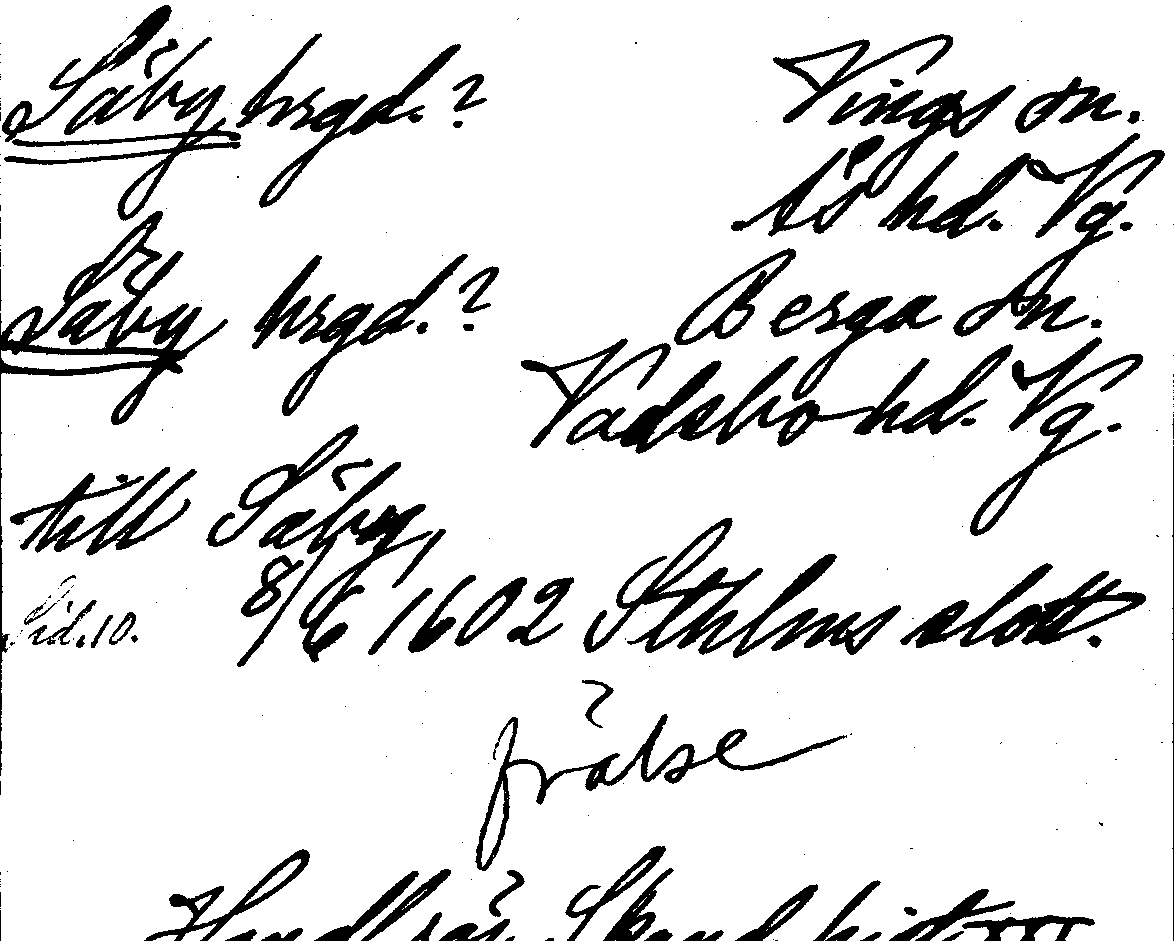 Säby hrgd.? Vings sn.
Ås hd. Vg.
Säby hrgd.? Berga sn.
Vadsbo hd. Vg.
till Säby,
Sid. 10. 8/6 1602 Sthlms slott.
frälse
Handl rör Skand hist